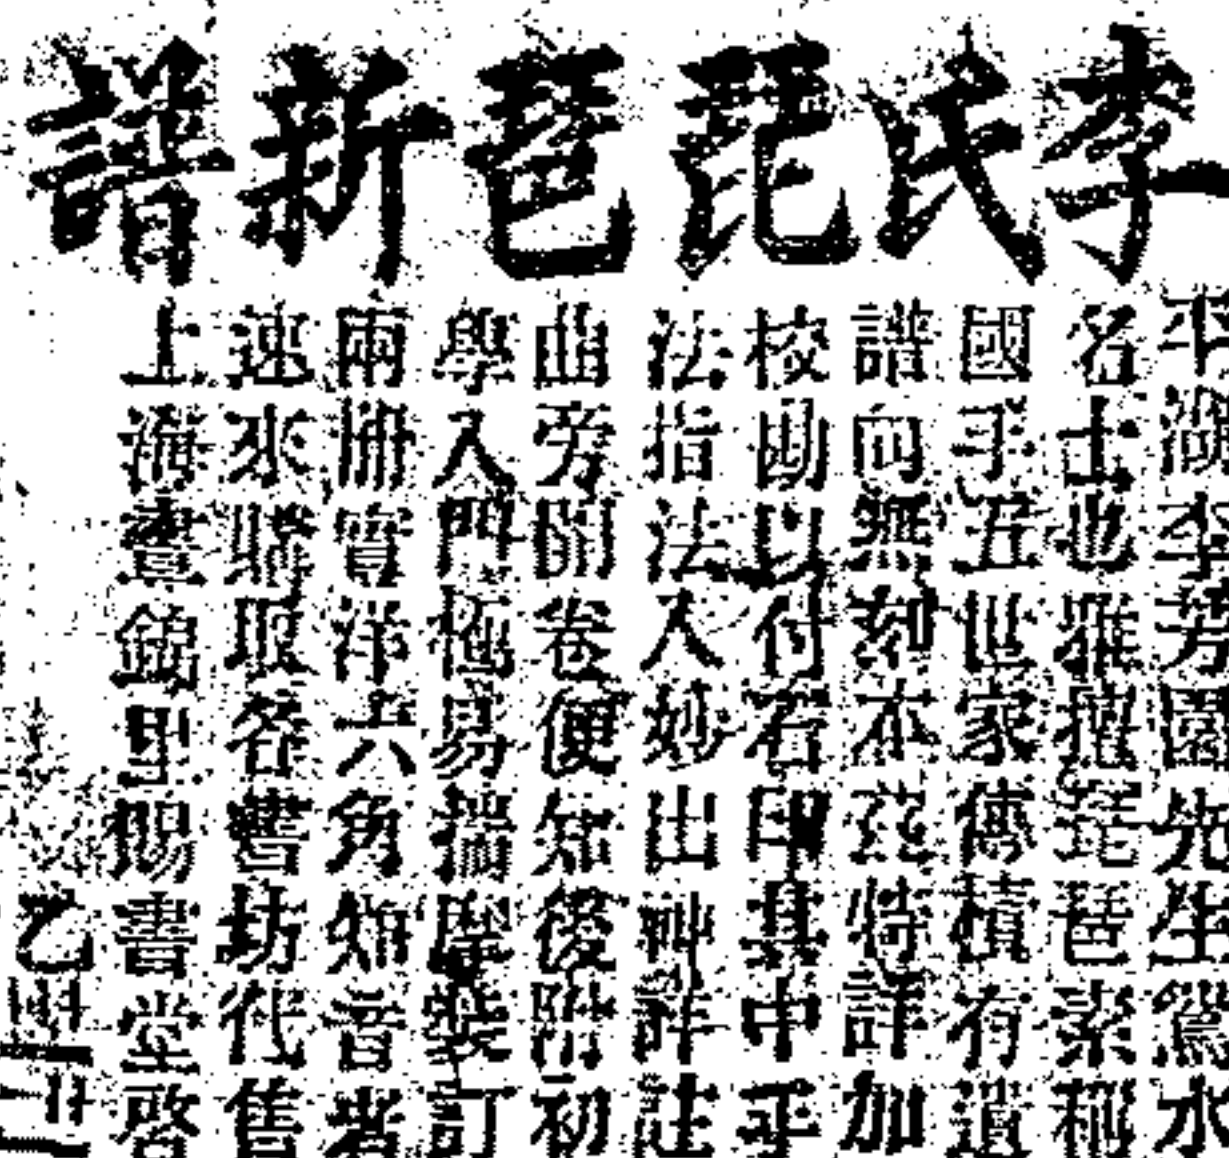 李氏琵琶新譜
平湖李芳園先生鴛水
名士也雅擅琵琶素稱
國手五世家傳積有遺
譜向無刻本茲特詳加
校勘以付石印其中手
法指法入妙出神詳註
曲旁開卷便知後附初
學入門極易揣摩裝訂
兩册實洋六角知音者
速來購取各書坊代售
上海畫錦里賜書堂啓